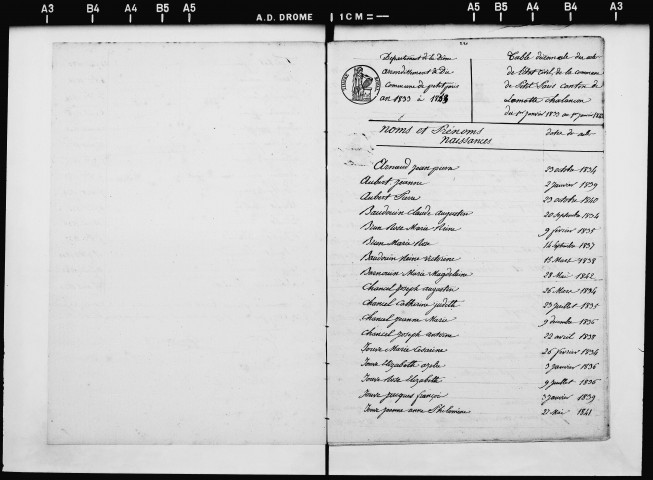 A3 B4 A4 B5 A5 A.D. DROME 1CM = A5 B5 A4 B4 A3
Departement de la Drôme
arrondissement de Die
Commune de petit paris
an 1833 à 1843
Table décennale des actes
de l'état civil de la commune
de Petit Paris canton de
Lamotte Chalancon
du 1er janvier 1833 au 1er janvier 1843
noms et Prénoms
naissances
dates des actes
Armand jean pierre 23 octobre 1834
Aubert jeanne 2 janvier 1839
Aubert Pierre 23 octobre 1840
Baudouin Claude augustin 20 Septembre 1834
Rose Marie Reine 9 février 1835
Marie Rose 14 Septembre 1837
Baudouin Reine victorine 15 Mars 1838
Marie Magdeleine 28 Mai 1842
Chancel Joseph augustin 26 Mars 1834
Chancel Catherine judith 23 juillet 1835
Chancel jeanne Marie 9 decembre 1836
Chancel Joseph antoine 22 avril 1838
Marie Césarine 26 fevrier 1834
Elizabeth 3 janvier 1836
Rose Elizabeth 9 juillet 1836
jacques françois 3 janvier 1839
jeanne anne Philomène 21 Mai 1841